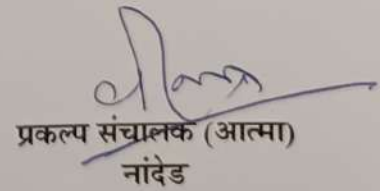 प्रकल्प संचालक (आत्मा)
नांदेड